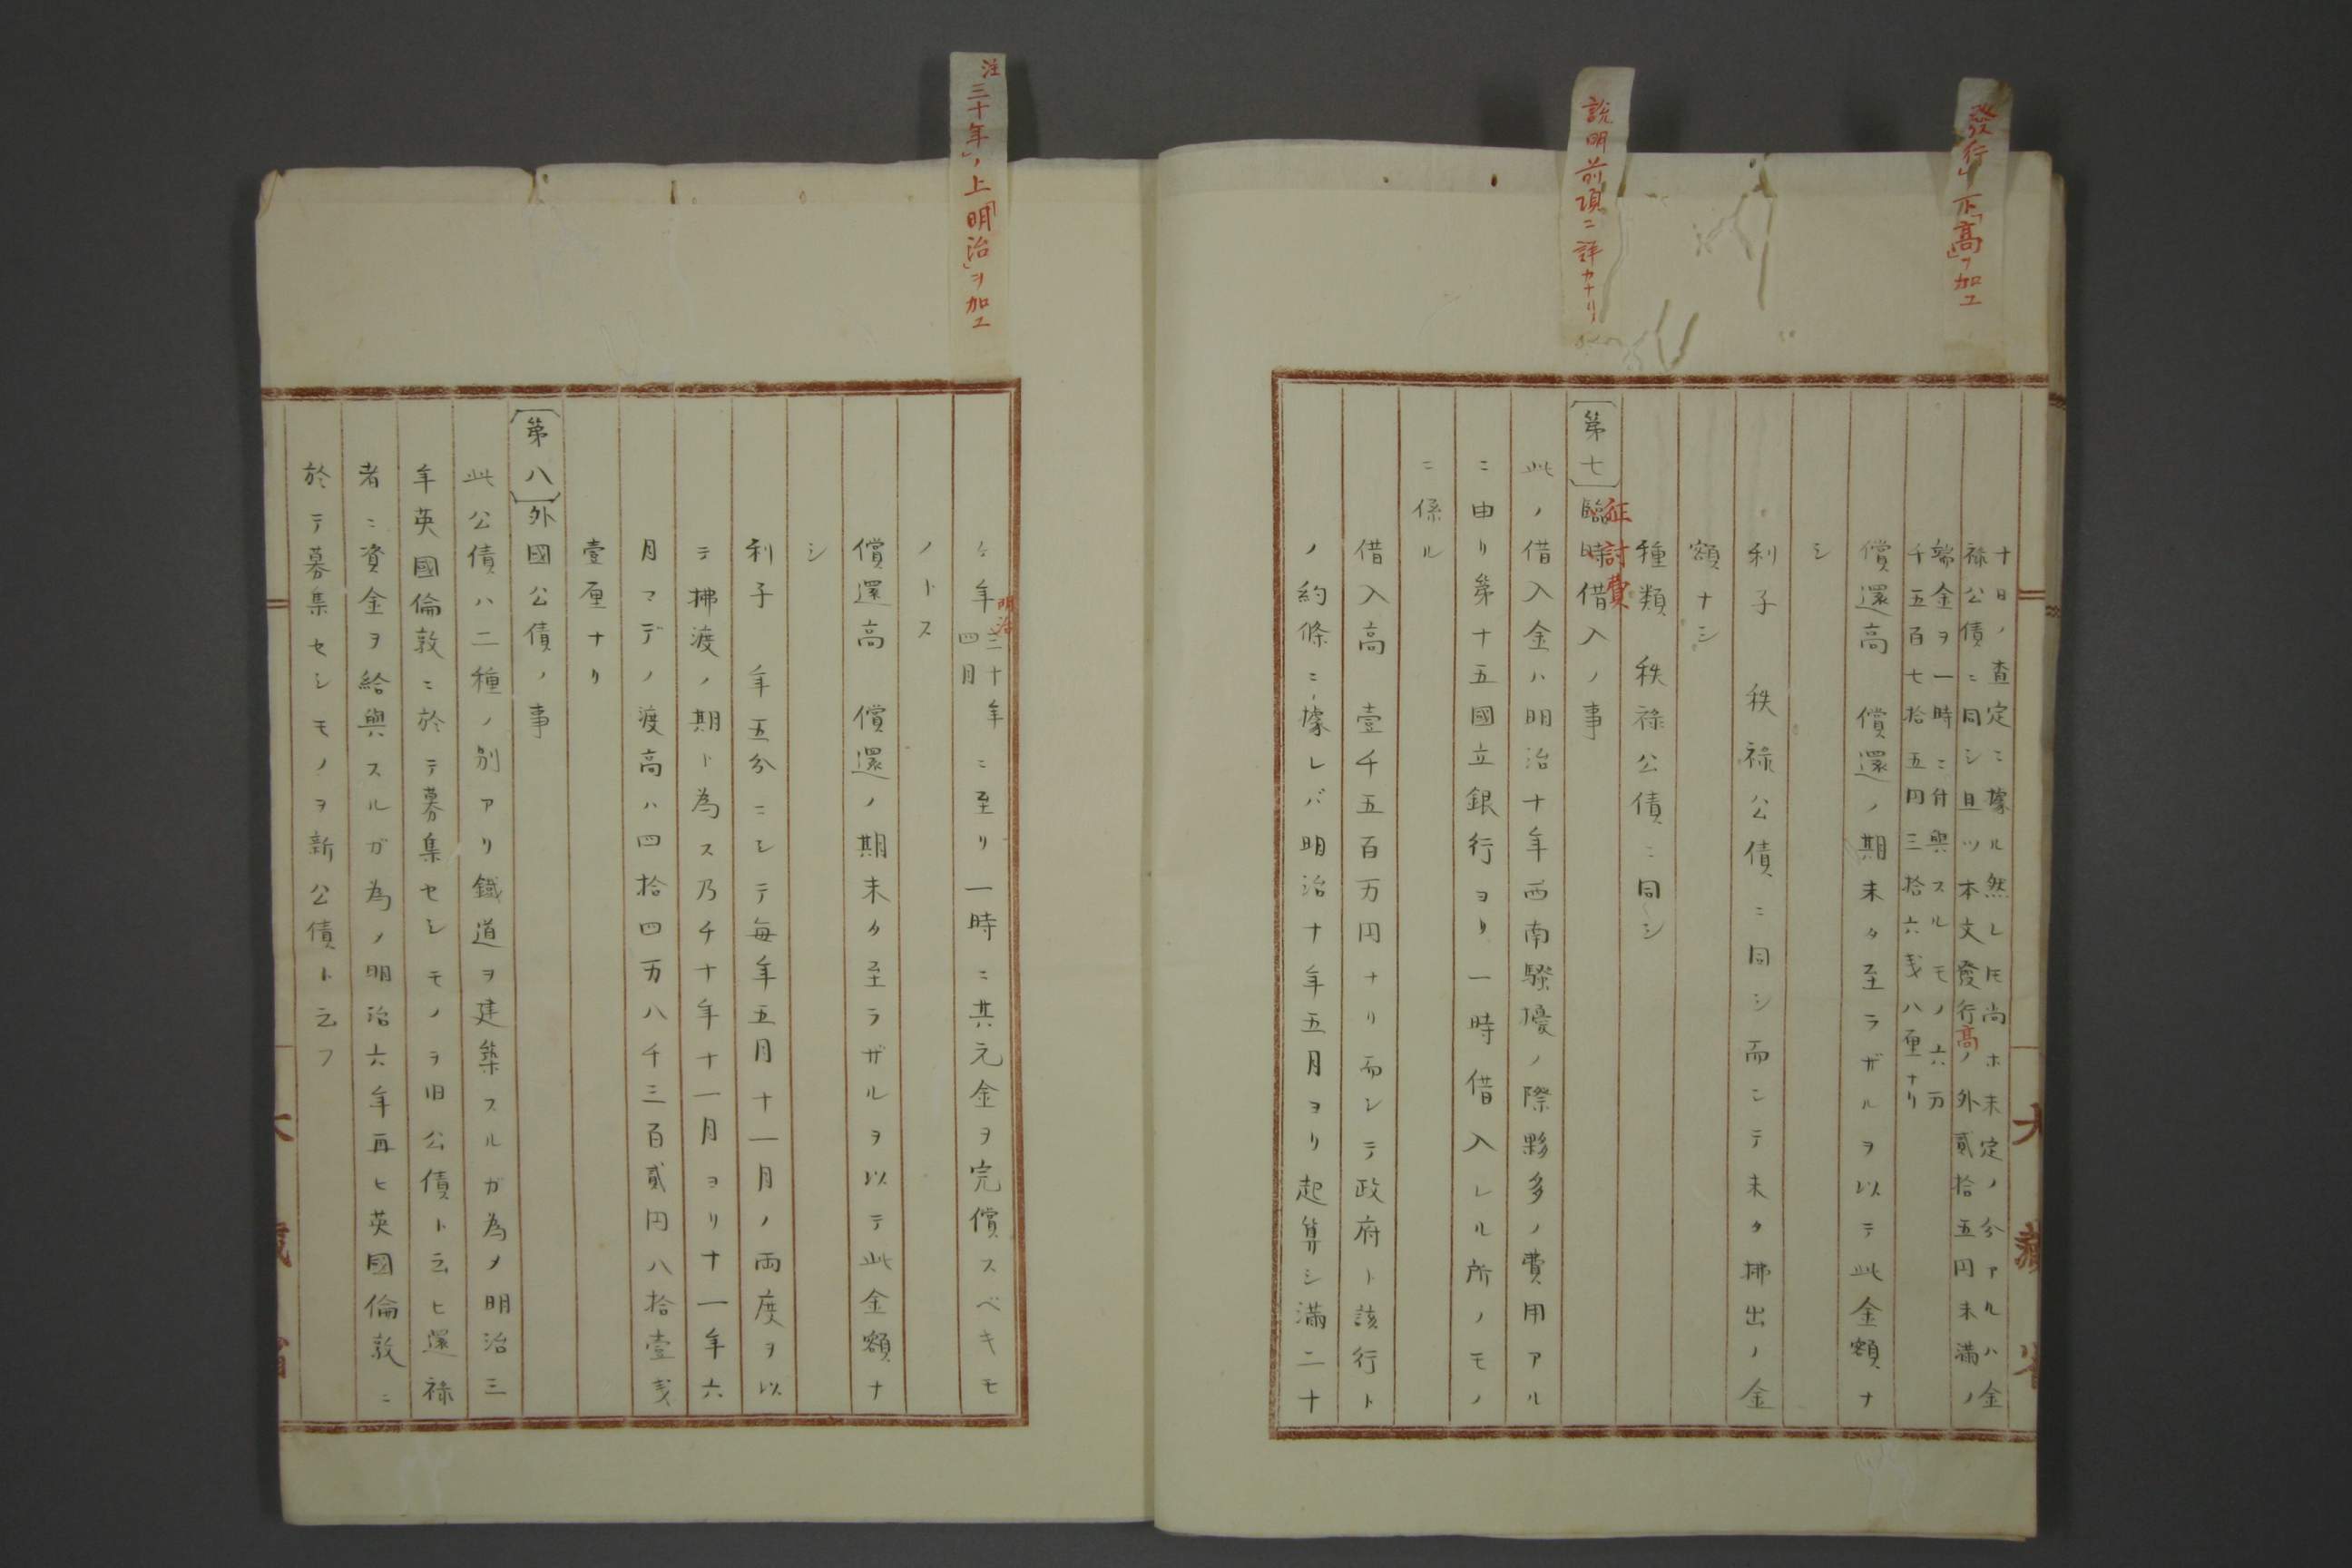 發行ノ下「高」ヲ加エ
說明前項ニ詳カナリ
十日ノ査定ニ據ル然レ𪜈尚ホ未定ノ分アルハ金
祿公債ニ同シ且ツ本文發行高ノ外貳拾五円未満ノ
端金ヲ一時ニ付與スルモノ六万
千五百七拾五円三拾六戔八厘ナリ
償還高 償還ノ期未タ至ラザルヲ以テ此金額ナ
シ
利子 秩祿公債ニ同シ而シテ未タ拂出ノ金
額ナシ
種類 秩祿公債ニ同シ
〔第七〕臨時借入ノ事
征討費
此ノ借入金ハ明治十年西南騷擾ノ際夥多ノ費用アル
ニ由リ第十五國立銀行ヨリ一時借入レル所ノモノ
ニ係ル
借入高 壹千五百万円ナリ而シテ政府ト該行ト
ノ約條ニ據レバ明治十年五月ヨリ起算シ滿二十
大藏省
注三十年」ノ上「明治」ヲ加エ
ケ年明治三十年四月ニ至リ一時ニ其元金ヲ完償スベキモ
ノトス
償還高 償還ノ期未タ至ラザルヲ以テ此金額ナ
シ
利子 年五分ニシテ毎年五月十一月ノ両度ヲ以
テ拂渡ノ期ト為ス乃チ十年十一月ヨリ十一年六
月マデノ渡高ハ四拾四万八千三百貳円八拾壹戔
壹厘ナリ
〔第八〕外國公債ノ事
此公債ハ二種ノ別アリ鐵道ヲ建築スルガ為メ明治三
年英國倫敦ニ於テ募集セシモノヲ旧公債ト云ヒ還祿
者ニ資金ヲ給與スルガ為ノ明治六年再ヒ英國倫敦ニ
於テ募集セシモノヲ新公債ト云フ